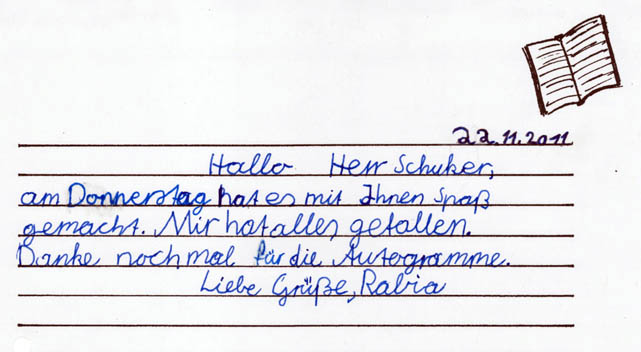 22.11.2011
Hallo Herr Schuker,
am Donnerstag hat es mit Ihnen Spaß
gemacht. Mir hat alles gefallen.
Danke nochmal für die Autogramme.
Liebe Grüße, Rabia